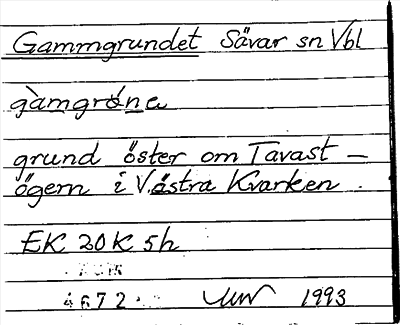 Gammgrundet Sävar sn Vbl
gàmgrɵ́na
grund öster om Tavast-
ögern i V. östra Kvarken
EK 20K 5h
4672
1993